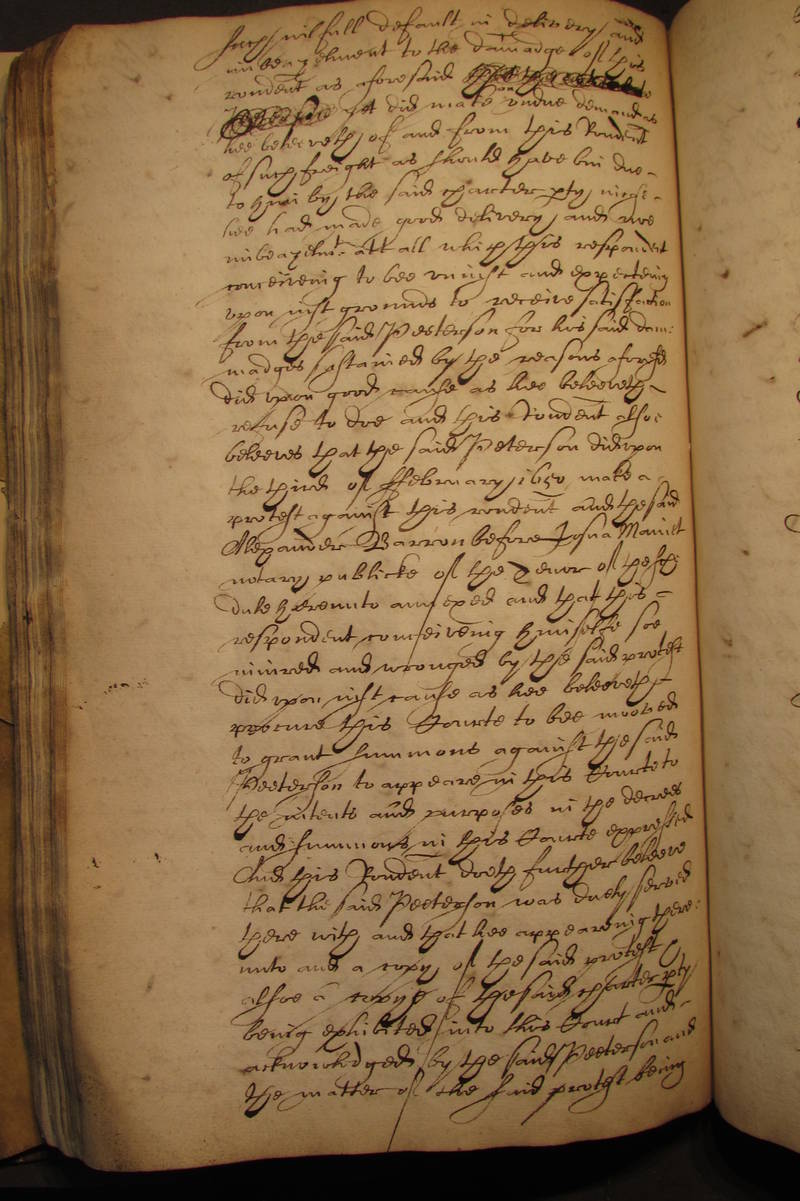 such wilfull default in delivery and
imbeazelment to the damadge of this
rondent as aforesaid
yet did make on undue demand as
hee beleeveth of and from this Rondent
of such freight as should have bin due
to him by the said charter pty, in case
hee had made good delivery, and noe
imbeazelmt att all which this respondent
conceiveing to bee uniust and expecteing
upon iust grounds to receive satisfaction
from the said Peeterson for his said dam:
madges sustained by the reasons aforesd
did upon good cause as hee beleeveth
refuse to doe and this rondent alsoe
beleeves that the said Peterson did upon
the third of ffebruary 1650 make a
protest against this rondent and the said
Alexander Barron before Josua Mainet
notary publicke of the Tenor of the sche
dule hereunto annexed and that this
respondent conceiveing himselfe soe
iniured and wronged by the said protest
did upon iust cause as hee beleeveth
procure this Courte to bee mooved
to grant summons against the said
Peeterson to appeare in this Courte to
the intents and purposes in the decrees
and summons in this Courte expressed
And this Rondent doth further beleeve
that the said Peeterson was duely served
there with and that hee appeareing there:
unto and a copy of the said protest
alsoe a copye of the said charter pty
being exhibited into this Court and
acknowledged by the said Peeterson and
the matter of the said protest being